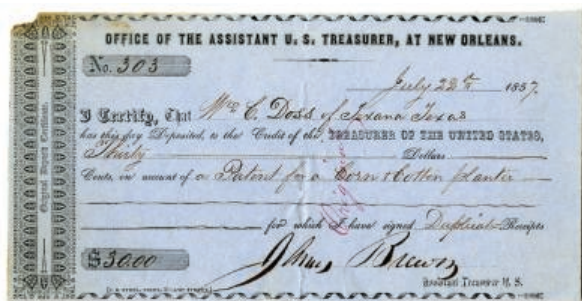 OFFICE OF THE ASSISTANT U. S. TREASURER, AT NEW ORLEANS.
No. 303
July 22th 1857.
I Certify, That Wm C. Doss of Texana Texas
has this day Deposited, to the Credit of the TREASURER OF THE UNITED STATES,
Thirty Dollars
Cents, on account of a Patent for a Corn & Cotton planter
for which I have signed Duplicate Receipts
$30.00
Assistant Treasurer U. S.
Original